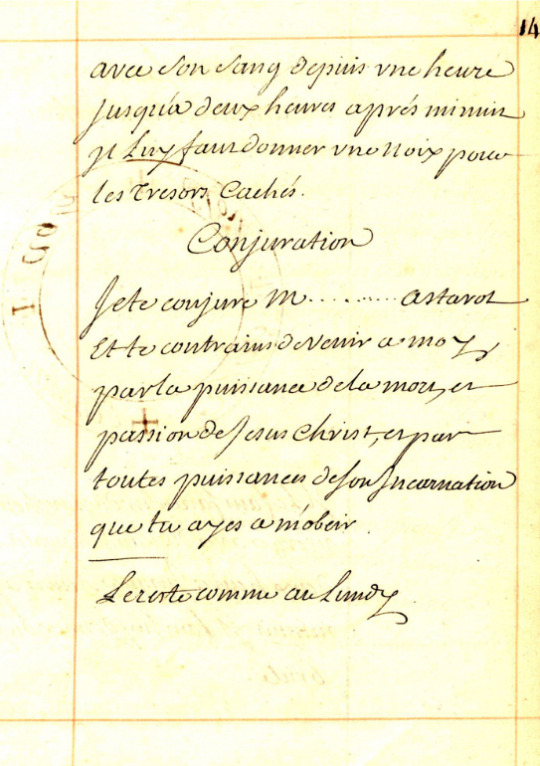 14
avec son sang depuis vne heure
jusqu'a deux heures aprés minuit
jl Luy faut donner vne noix pour
les Tresors Cachés.
Conjuration
Je te conjure M .......... astarot
Et te contrains de venir a moy
par la puissance de la mort, et
passion de Jesus Christ, et par
toutes puissances de son Jncarnation
que tu ayes a m'obeir.
Le reste comme au Lundy